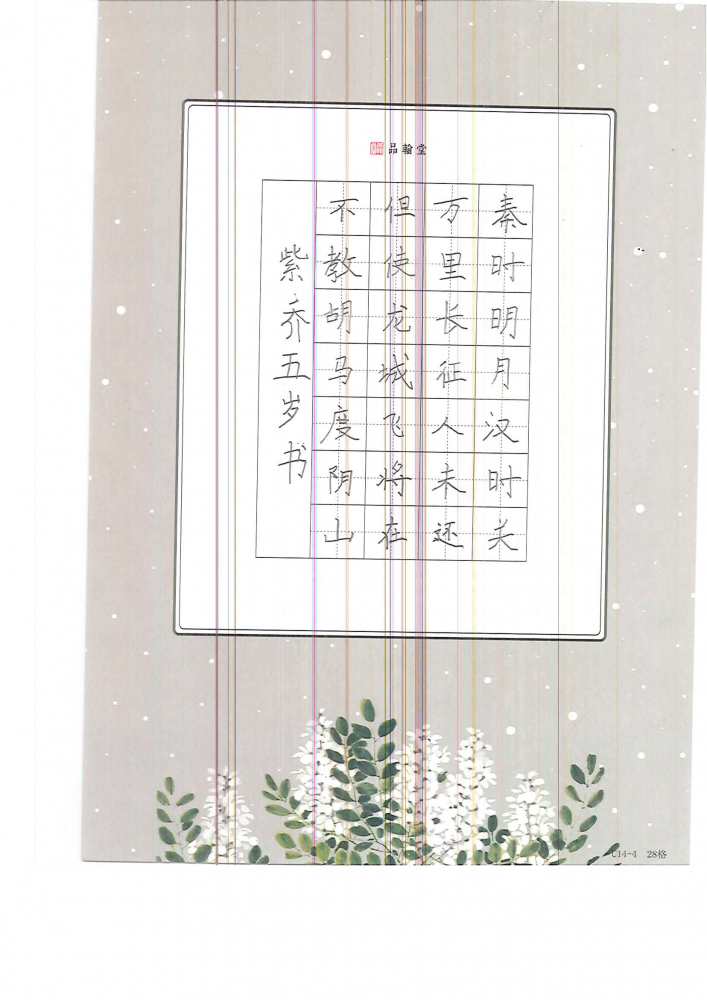 品翰堂
秦时明月汉时关
万里长征人未还
但使龙城飞将在
不教胡马度阴山
紫乔五岁书
C14-4 28格